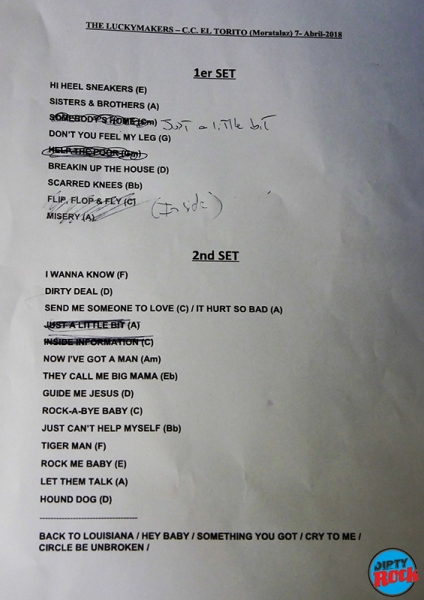 THE LUCKYMAKERS – C.C. EL TORITO (Moratalaz) 7- Abril-2018
1er SET
HI HEEL SNEAKERS (E)
SISTERS & BROTHERS (A)
SOMEBODY'S HOME (Cm) Just a little bit
DON'T YOU FEEL MY LEG (G)
HELP THE POOR (Gm)
BREAKIN UP THE HOUSE (D)
SCARRED KNEES (Bb)
FLIP, FLOP & FLY (C) (Inside)
MISERY (A)
2nd SET
I WANNA KNOW (F)
DIRTY DEAL (D)
SEND ME SOMEONE TO LOVE (C) / IT HURT SO BAD (A)
JUST A LITTLE BIT (A)
INSIDE INFORMATION (C)
NOW I'VE GOT A MAN (Am)
THEY CALL ME BIG MAMA (Eb)
GUIDE ME JESUS (D)
ROCK-A-BYE BABY (C)
JUST CAN'T HELP MYSELF (Bb)
TIGER MAN (F)
ROCK ME BABY (E)
LET THEM TALK (A)
HOUND DOG (D)
--------------------------------
BACK TO LOUISIANA / HEY BABY / SOMETHING YOU GOT / CRY TO ME /
CIRCLE BE UNBROKEN /
DIRTY
Rock